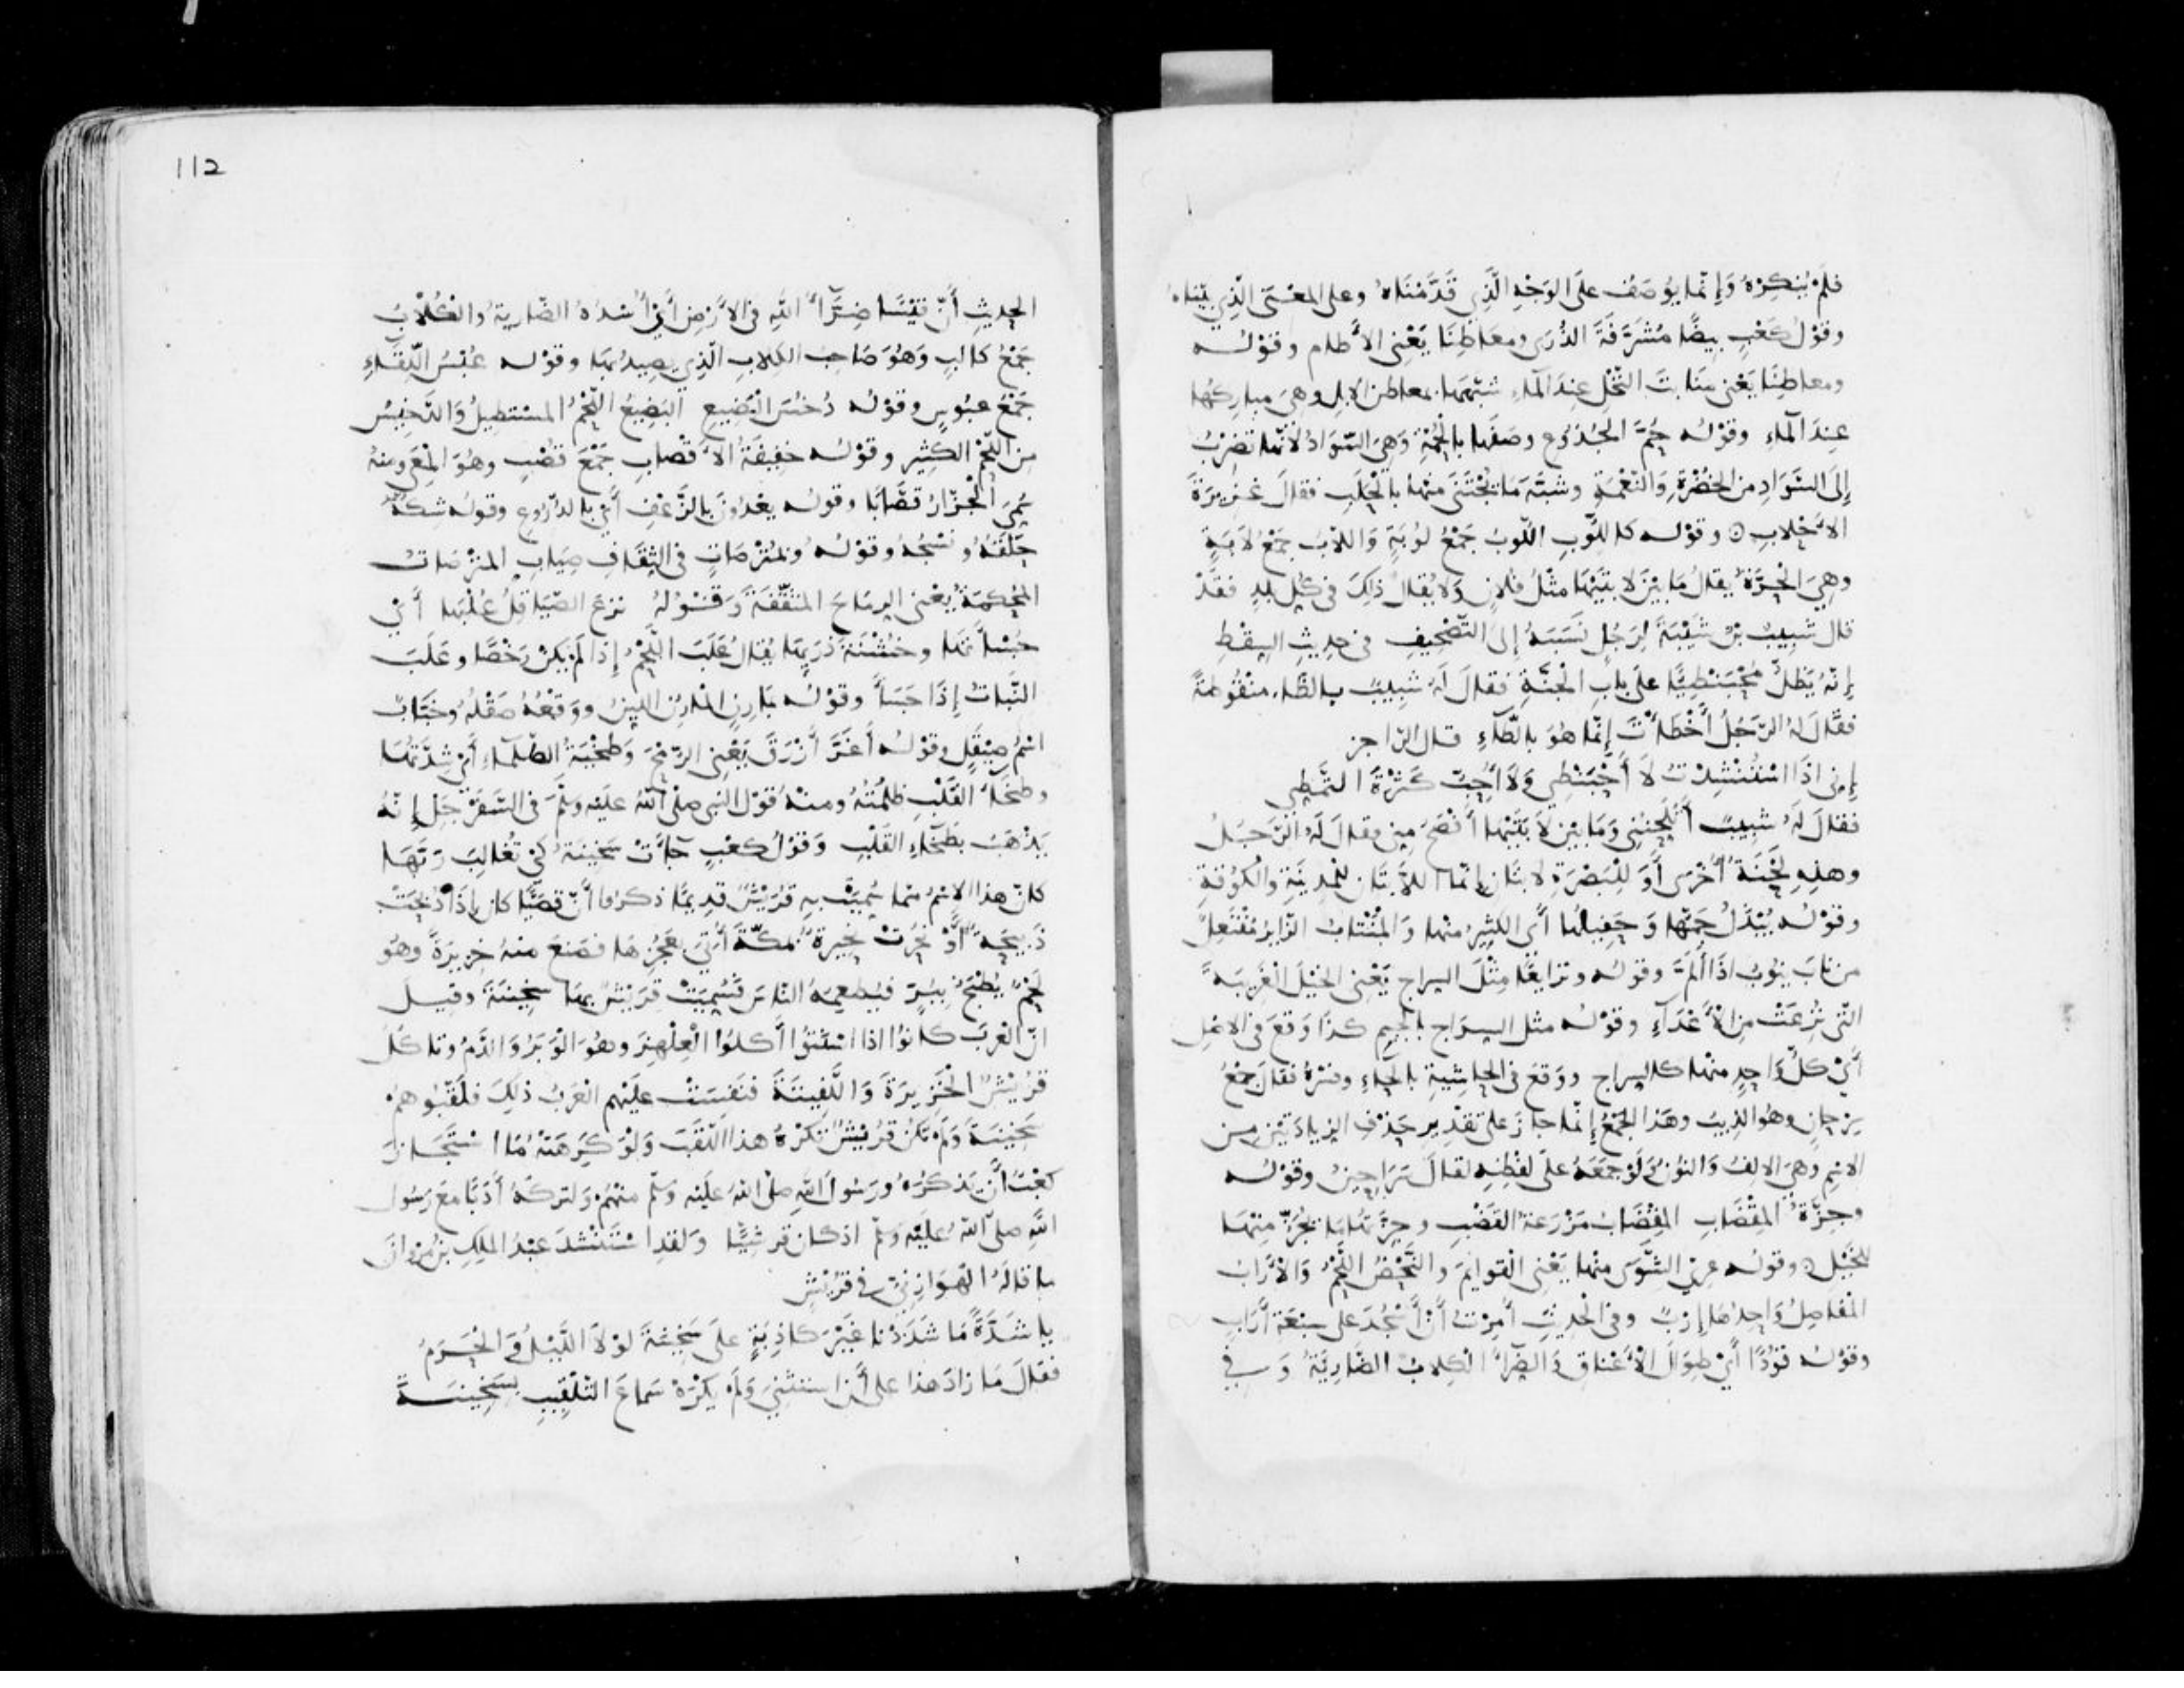 فلم ينكره وإنما يوصف على الوجه الذي قدمناه وعلى المعنى الذي بيناه
وقول كعب بيضا مشرفة الذرى ومعاطنا يعني الأطام وقوله
ومعاطنا يعني منابت النخل عند الماء شبهها بمعاطن الابل وهي مباركها
عند الماء وقوله حم الجذوع وصفها بالحمة وهي السواد لأنها تضرب
إلى السواد من الخضرة والنعمة وشبه ما يجتنى منها بالحلب فقال غزيرة
الأحلاب وقوله كاللوب اللوب جمع لوبة واللاب جمع لابة
وهي الحرة يقال ما بين لابتيها مثل فلان ولا يقال ذلك في كل بلد فقد
قال شبيب بن شيبة لرجل نسبه إلى التصحيف في حديث السقط
إنه يظل محبنطيا على باب الجنة فقال له شبيب بالظاء منقوطة
فقال له الرجل أخطأت إنما هو بالطاء قال الراجز
إني إذا استنشدت لا أحبنطي ولا أحب كثرة التمطي
فقال له شبيب أتلحنني وما بين لابتيها أفصح مني فقال له الرجل
وهذه لحنة أخرى أو للبصرة لابتان إنما اللابتان للمدينة والكوفة
وقوله يبذل جمها وحفيلها أي الكثير منها والمنتاب الزاير مفتعل
من ناب ينوب اذا ألم وقوله ونزايعا مثل السراج يعني الخيل الغريبة
التي نزعت من الأعداء وقوله مثل السراج بالجيم كذا وقع في الاصل
أي كل واحد منها كالسراج ووقع في الحاشية بالحاء وفسره فقال جمع
سرحان وهو الذيب وهذا الجمع إنما جاز على تقدير حذف الزيادتين من
الاسم وهي الالف والنون ولو جمعه على لفظه لقال سراحين وقوله
وجزة المقضاب المقضاب مزرعة القضب وجزتها ما يجز منها
للخيل وقوله عري الشوى منها يعني القوائم والنحض اللحم والأراب
المفاصل واحدها إرب وفي الحديث أمرت أن أسجد على سبعة أراب
وقوله قودا أي طوال الأعناق والضراء الكلاب الضارية وفي
112
الحديث أن قيسا ضراء الله في الأرض أي أسده الضارية والكلاب
جمع كالب وهو صاحب الكلاب الذي يصيد بها وقوله عبس اللقاء
جمع عبوس وقوله دخس البضيع البضيع اللحم المستطيل والدخيس
من اللحم الكثير وقوله خفيفة الأقصاب جمع قصب وهو المعى ومنه
سمي الجزار قصابا وقوله يغدون بالزغف أي بالدروع وقوله شكه
حلقه ونسجه وقوله ومترصات في الثقاف صياب المترصات
المحكمة يعني الرماح المثقفة وقوله نزع الصياقل علبها أي
جسأتها وخشنة دريها يقال علب اللحم إذا لم يكن رخصا وعلب
النبات إذا جسأ وقوله بمارن المارن اللين ووقعه صقله وخباب
اسم صيقل وقوله أغر أزرق يعني الرمح وطخية الظلماء أي شدتها
وطخاء القلب ظلمته ومنه قول النبي صلى الله عليه وسلم في السفرجل إنه
يذهب بطخاء القلب وقول كعب جاءت سخينة كي تغالب ربها
كان هذا الاسم مما سميت به قريش قديما ذكروا أن قصيا كان إذا ذبحت
ذبيحة أو نحرت نحيرة بمكة أتي بعجزها فصنع منه خزيرة وهو
لحم يطبخ ببر فيطعمه الناس فسميت قريش بها سخينة وقيل
ان العرب كانوا اذا اسنتوا أكلوا العلهز وهو الوبر والدم وتاكل
قريش الخزيرة واللفيتة فنفست عليهم العرب ذلك فلقبوهم
سخينة ولم تكن قريش تكره هذا اللقب ولو كرهته ما استجاز
كعب أن يذكره ورسول الله صلى الله عليه وسلم منهم ولتركه أدبا مع رسول
الله صلى الله عليه وسلم اذ كان قرشيا ولقد استنشد عبد الملك بن مروان
ما قاله الهوازني في قريش
يا شدة ما شددنا غير كاذبة على سخينة لولا الليل والحرم
فقال ما زاد هذا على أن استثنى ولم يكره سماع التلقيب بسخينة